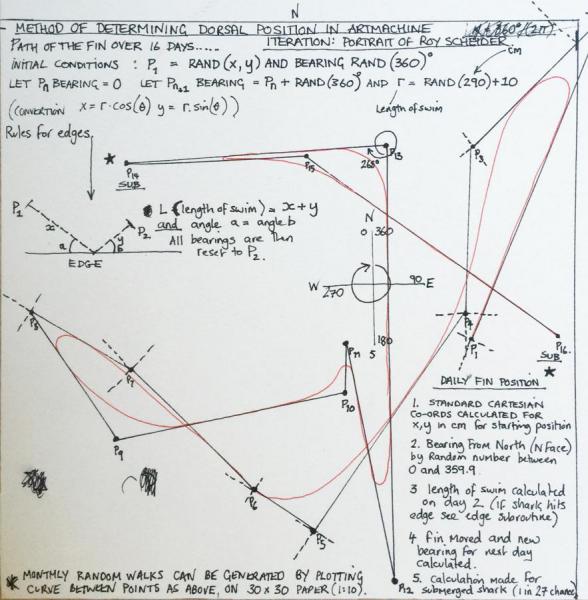 N
METHOD OF DETERMINING DORSAL POSITION IN ARTMACHINE
x 360°/(2π)
PATH OF THE FIN OVER 16 DAYS.....
ITERATION: PORTRAIT OF ROY SCHEIDER
cm
INITIAL CONDITIONS : P1 = RAND(x,y) AND BEARING RAND(360)°
LET Pn BEARING = 0 LET Pn+1 BEARING = Pn + RAND(360°) AND r = RAND(290)+10
(CONVERTION x = r.cos(θ) y = r.sin(θ))
Length of swim
Rules for edges.
P14
SUB
P15
268°
P13
P3
P1
x
a
y
b
P2
EDGE
L (length of swim) = x+y
and angle a = angle b
All bearings are then
reset to P2.
N
0 360
W 270
90 E
180
S
P8
P7
P11
P10
P9
P4
P1
P16
SUB
P6
P5
P12
DAILY FIN POSITION
1. STANDARD CARTESIAN
CO-ORDS CALCULATED FOR
x,y in cm for starting position
2. Bearing From North (N Face)
by Random number between
0 and 359.9
3 length of swim calculated
on day 2 (if shark hits
edge see edge subroutine)
4 fin moved and new
bearing for next day
calculated.
5. calculation made for
submerged shark (1 in 27 chance)
* MONTHLY RANDOM WALKS CAN BE GENERATED BY PLOTTING
CURVE BETWEEN POINTS AS ABOVE, ON 30 x 30 PAPER (1:10).